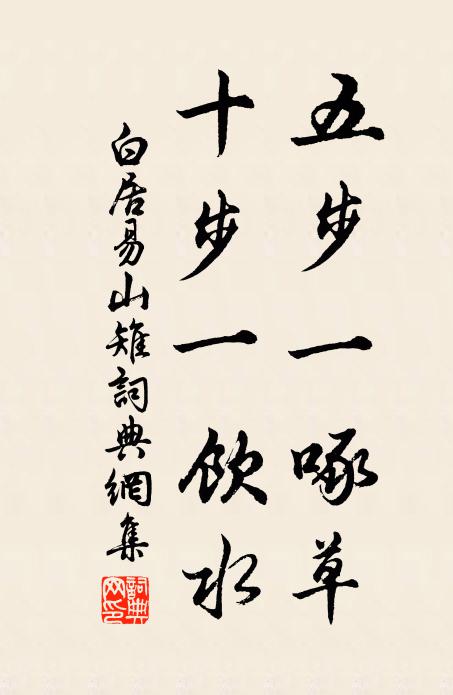 五步一啄草
十步一飲水
白居易山雉詞典網集
詞典网印